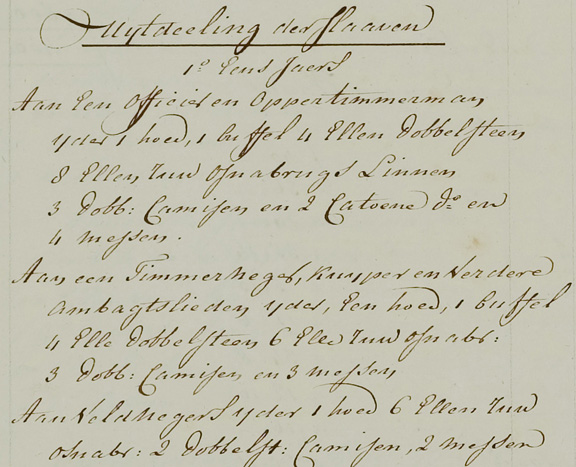 Uytdeeling der Slaaven
1º Eens Jaers
Aan Een officier en Oppertimmerman
yder 1 hoed, 1 buffel 4 Ellen dobbelsteen
8 Ellen ruw osnabrugs Linnen
3 dobb: Camisen en 2 Catoene dº en
4 messen.
Aan een Timmerneger, Kuyper en Verdere
ambagtslieden yder, Een hoed, 1 buffel
4 Elle dobbelsteen 6 Elle ruw osnabr:
3 dobb: Camisen en 3 messen
Aan Veldnegers yder 1 hoed 6 Ellen ruw
osnabr: 2 dobbelst: Camisen, 2 messen